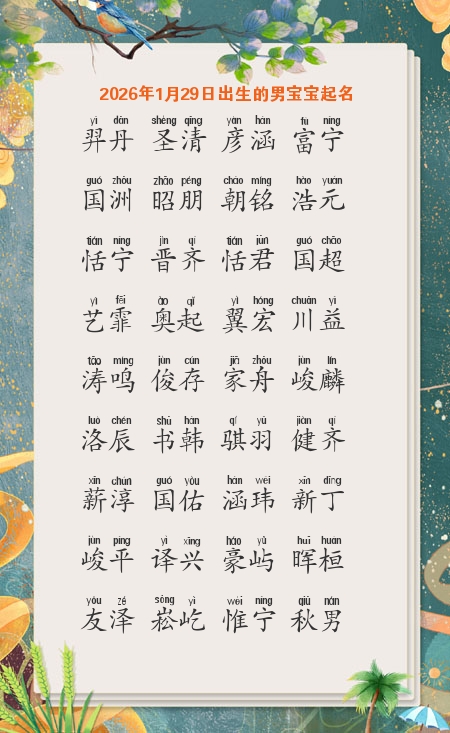 2026年1月29日出生的男宝宝起名
yì dān shèng qīng yàn hán fù níng
羿丹 圣清 彦涵 富宁
guó zhōu zhāo péng cháo míng hào yuán
国洲 昭朋 朝铭 浩元
tián níng jìn qí tián jūn guó chāo
恬宁 晋齐 恬君 国超
yì fēi ào qǐ yì hóng chuān yì
艺霏 奥起 翼宏 川益
tāo míng jùn cún jiā zhōu jùn lín
涛鸣 俊存 家舟 峻麟
luò chén shū hán qí yǔ jiàn qí
洛辰 书韩 骐羽 健齐
xīn chún guó yòu hán wěi xīn dīng
薪淳 国佑 涵玮 新丁
jùn píng yì xīng háo yǔ huī huán
峻平 译兴 豪屿 晖桓
yǒu zé sōng yì wéi níng qiū nán
友泽 崧屹 惟宁 秋男